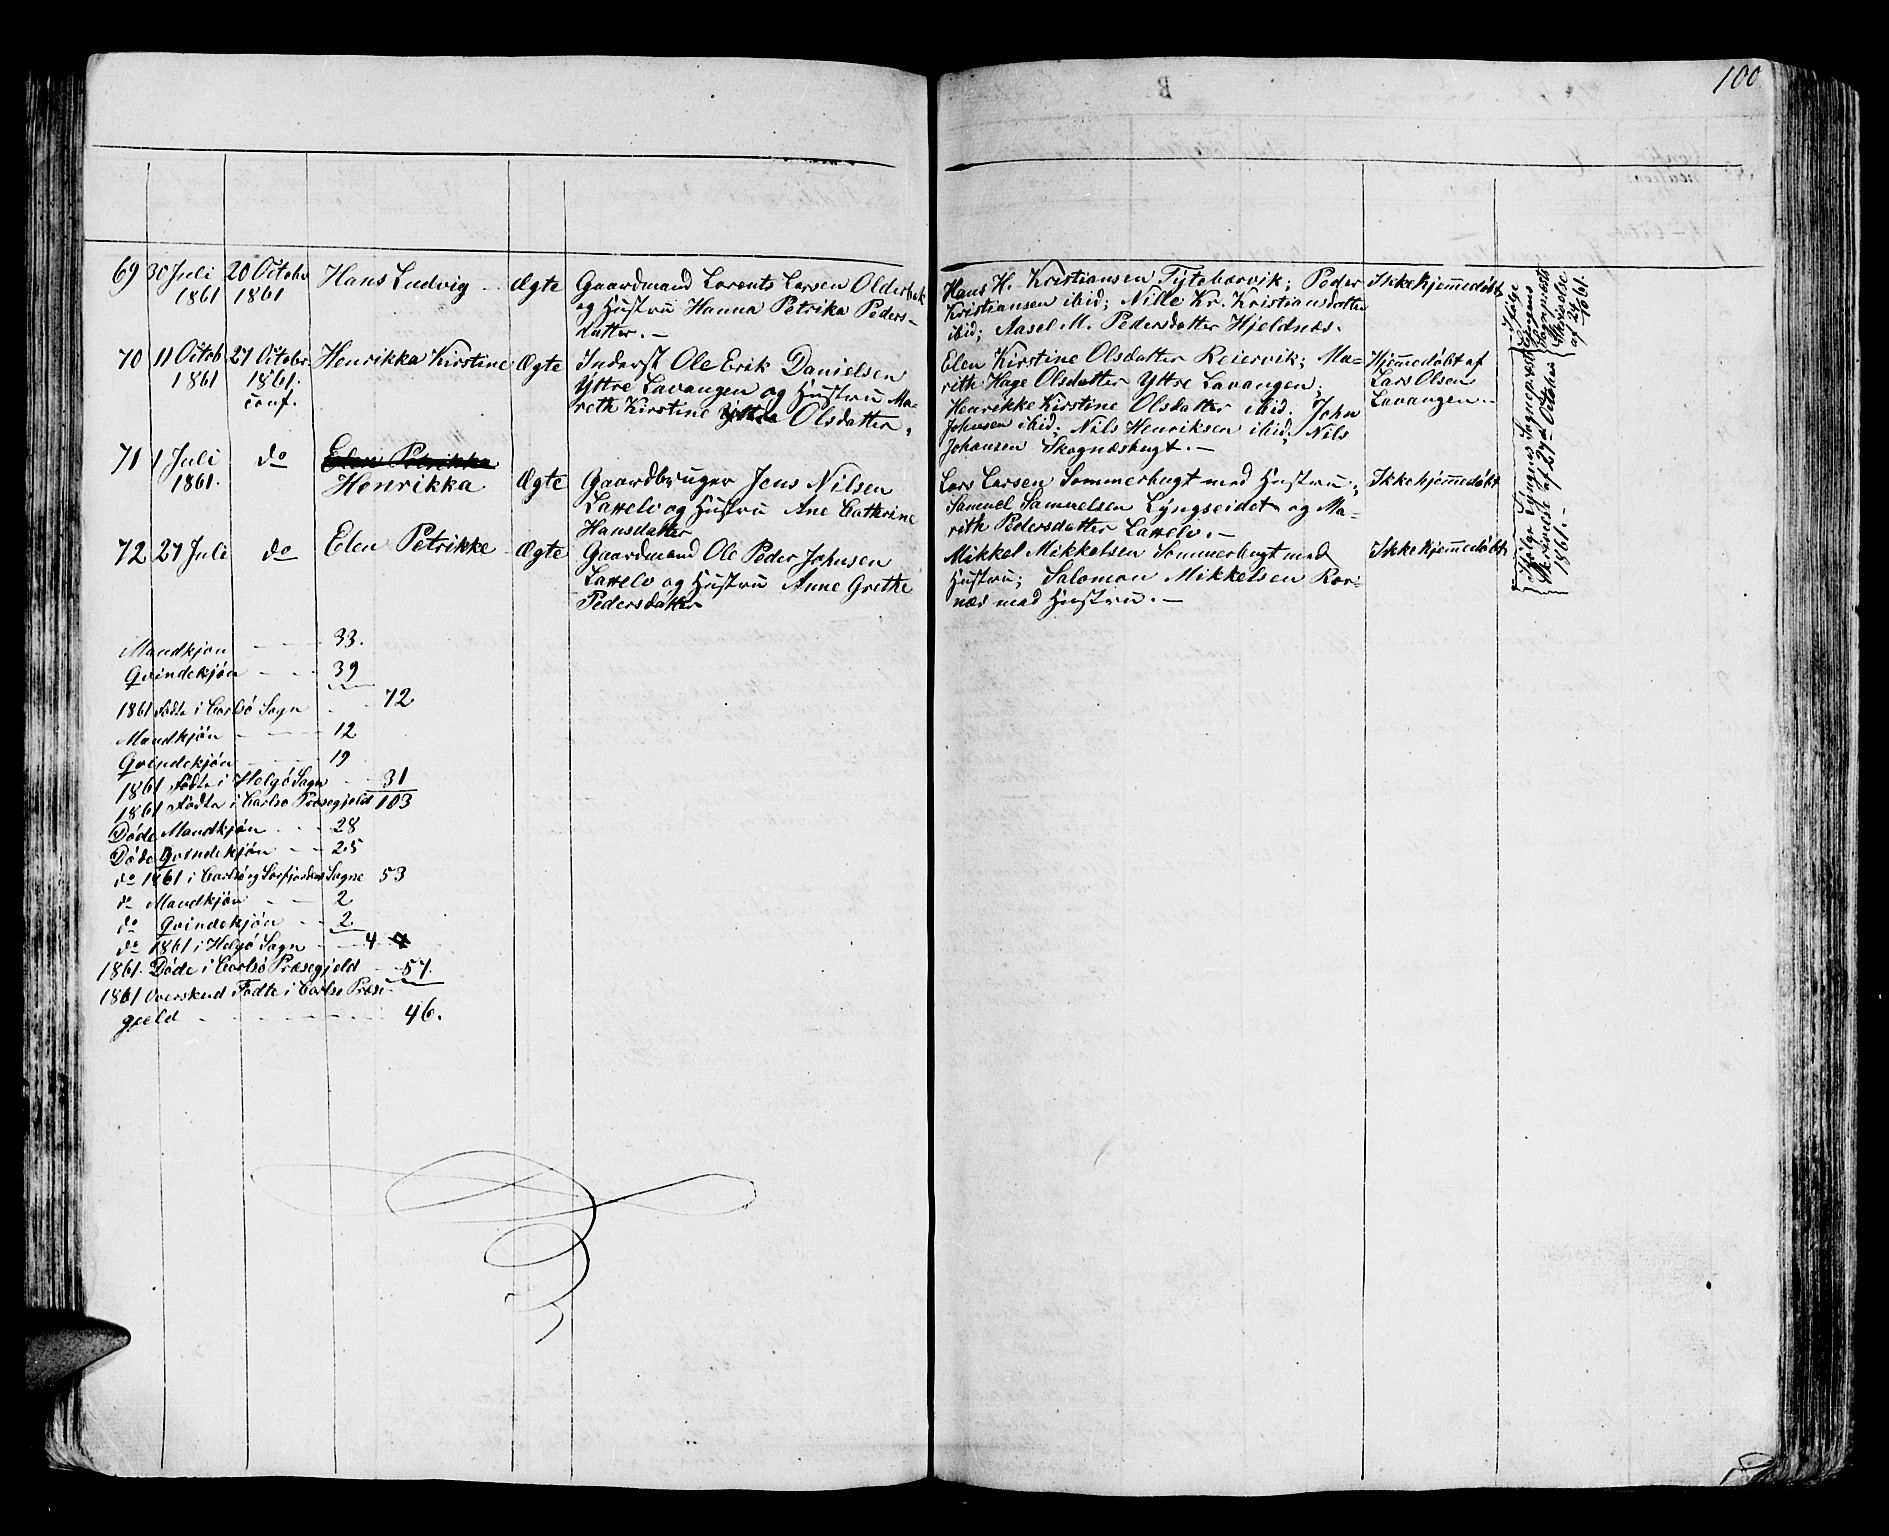 100
69 30 Juli 20 Octobr Hans Ludvig Ægte Gaardmand Lorents Larsen Olderbak
1861 1861 og Hustru Hanna Petrika Peders-
datter.
Hans H. Kristiansen Tyttebærvik; Peder Ikke hjemmedøbt
Kristiansen ibid; Nille Kr. Kristiansdatter
ibid; Aasel M. Pedersdatter Hjeldnæs.
Ifølge Lyngens Sogneprests Skrivelse af 24 1861.
70 11 Octob 27 Octobr Henrikka Kirstine Ægte Inderst Ole Erik Danielsen
1861 1861. Yttre Lavangen og Hustru Ma-
conf. reth Kirstine Olsdatter.
Elen Kirstine Olsdatter Reiervik; Ma- Hjemmedøbt af
rith Hage Olsdatter Yttre Lavangen; Lars Olsen
Henrikke Kirstine Olsdatter ibid. John Lavangen.
Johnsen ibid. Nils Henriksen ibid. Nils
Johansen Skognæsbugt.
71 1 Juli do Elen Petrikke
1861. Henrikka Ægte Gaardbruger Jens Nilsen
og Hustru Ane Cathrine
Hansdatter
Lars Larsen Sommerbugt med Hustru; Ikke hjemmedøbt
Samuel Samuelsen Lyngseidet og Ma-
rith Pedersdatter
72 27 Juli do Elen Petrikke Ægte Gaardmand Ole Peder Johnsen
og Hustru Anne Grethe
Pedersdatter
Mikkel Mikkelsen Sommerbugt med Ikke hjemmedøbt
Hustru; Salomon Mikkelsen Kor-
næs med Hustru.
Ifølge Lyngens Sogneprests
Skrivelse af 27de Octobr
1861.
Mandkjøn 33.
Qvindekjøn 39
1861 Fødte i Carlsø Sogn 72
Mandkjøn 12
Qvindekjøn 19
1861 Fødte i Helgø Sogn 31
1861 Fødte i Carlsø Præsegjeld 103
Døde Mandkjøn 28
Døde Qvindekjøn 25
do 1861 i Carlsø og Sørfjordens Sogne 53
do Mandkjøn 2
do Qvindekjøn 2
do 1861 i Helgø Sogn 4
1861. Døde i Carlsø Præsegjeld 57.
1861 Overskud Fødte i Carlsø Præse-
gjeld 46.